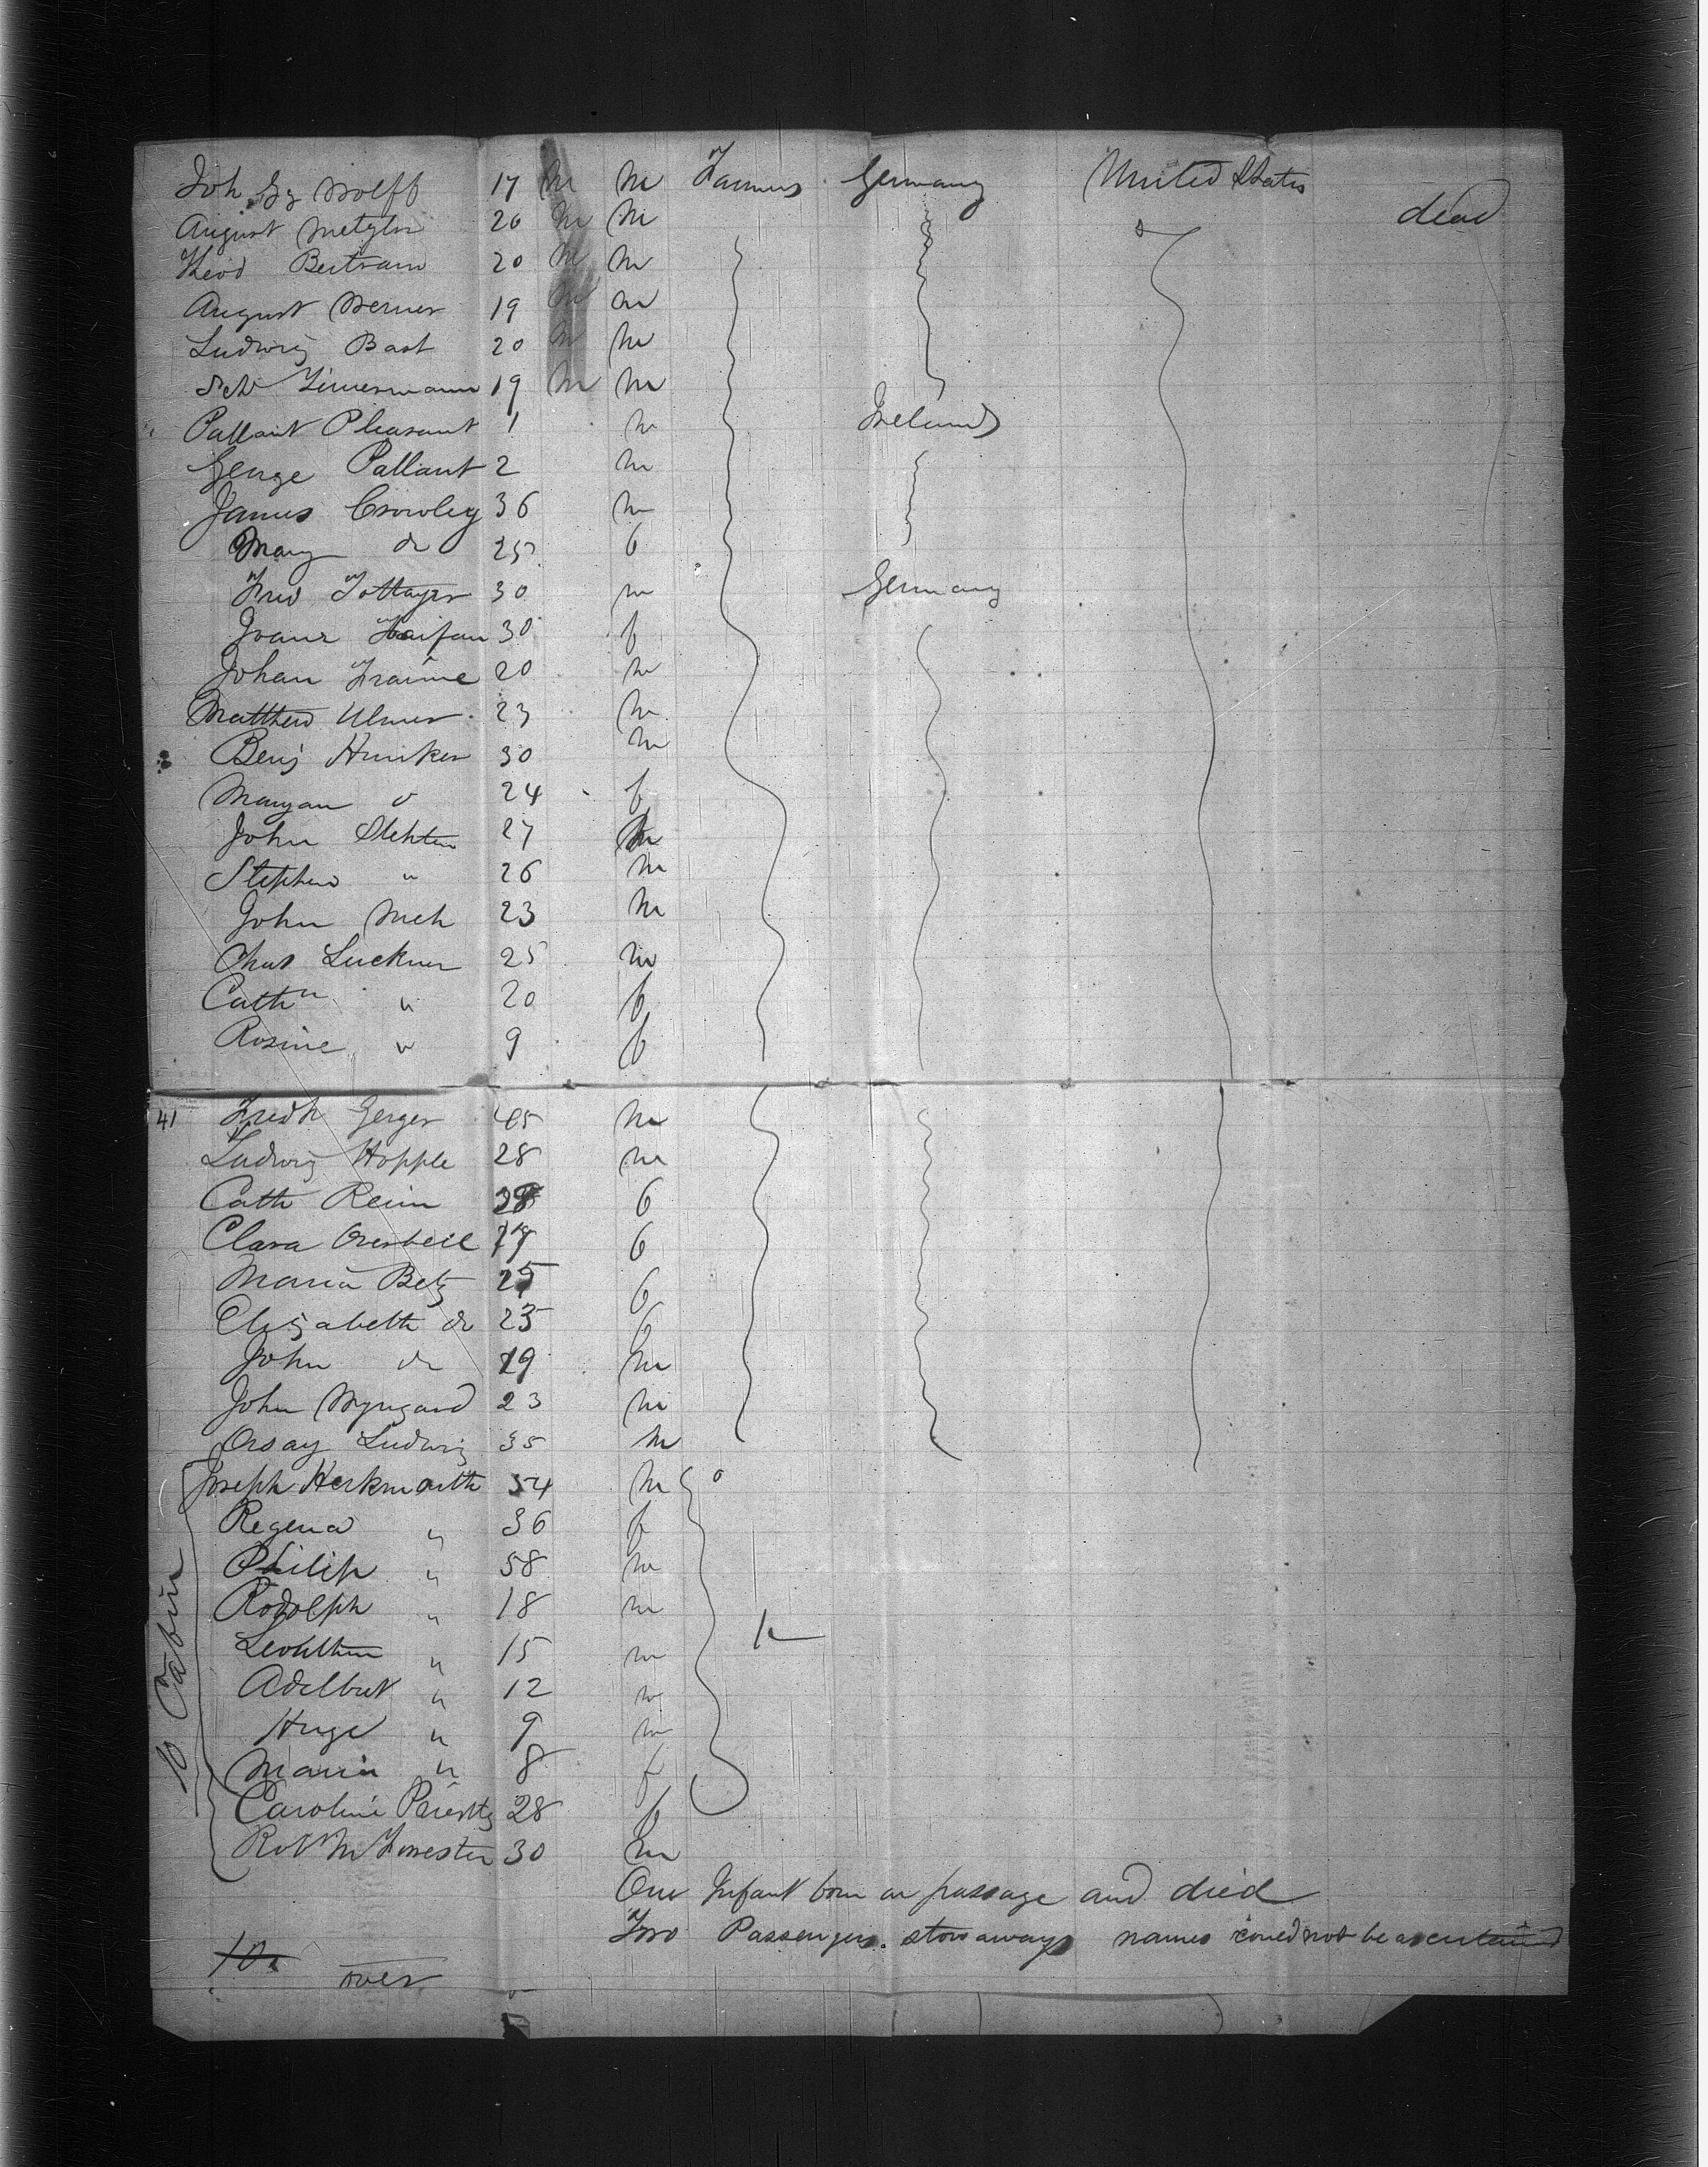 Joh Gg Wolff 17 M M Farmers Germany United States
August Metzler 26 M M dead
Theod Bertram 20 M M
August Werner 19 M M
Ludwig Bast 20 M M
Seb Zimermann 19 M M
Pallant Pleasant 1 m Ireland
George Pallant 2 m
James Crowley 36 m
Mary do 25 f
Fred 30 m Germany
30 f
Johan 20 m
Matthew Ulmer 23 m
Benj Hunker 30 m
Maryan " 24 f
John 27 m
Stephen " 26 m
John 23 m
Chas Luckner 25 m
Cathn " 20 f
Rosine " 9 f
41 Fredk Gerger 45 m
Ludwig Hopple 28 m
Cath Reim 28 f
Clara 27 f
Maria Betz 25 f
Elizabeth do 23 f
John do 19 m
John Wyngard 23 m
Ludwig 35 m
10 Cabin
Joseph 54 m
Regena " 36 f
Philip " 58 m
Rodolph " 18 m
" 15 m
Adelbert " 12 m
Hugo " 9 m
Maria " 8 f
Caroline 28 f
Robt M Forrester 30 m
One Infant born on passage and died
Two Passengers stowaways names could not be ascertained
10
over